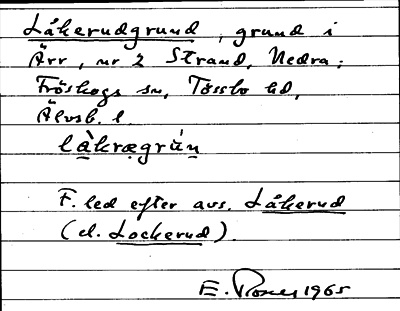 Låkerudgrund, grund i
Ärr, nr 2 Strand, Nedra;
Fröskogs sn, Tössbo hd,
Älvsb. l.
làkrægrún
F. led efter avs. Låkerud
(el. Lockerud).
E. 1965